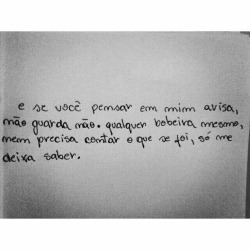 e se você pensar em mim avisa,
não guarda não. qualquer bobeira mesmo,
nem precisa contar o que se foi, só me
deixa saber.